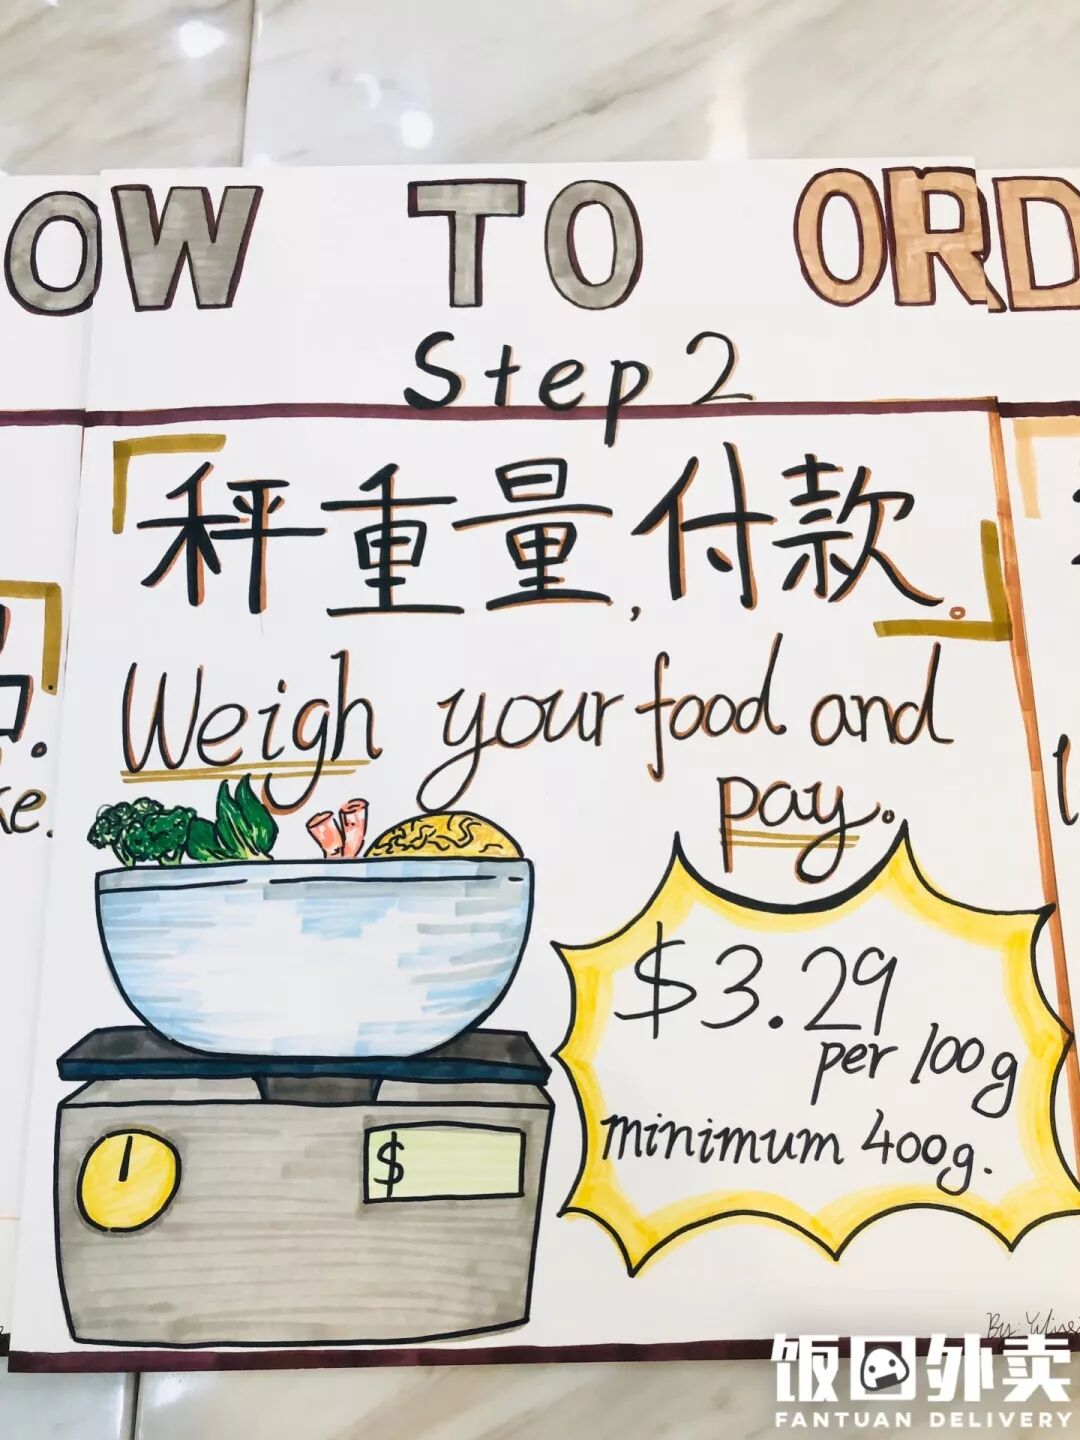 OW TO ORD
Step 2
「秤重量,付款。」
Weigh your food and
pay.
$3.29
per 100g
minimum 400g.
$
ke.
By:
饭团外卖
FANTUAN DELIVERY